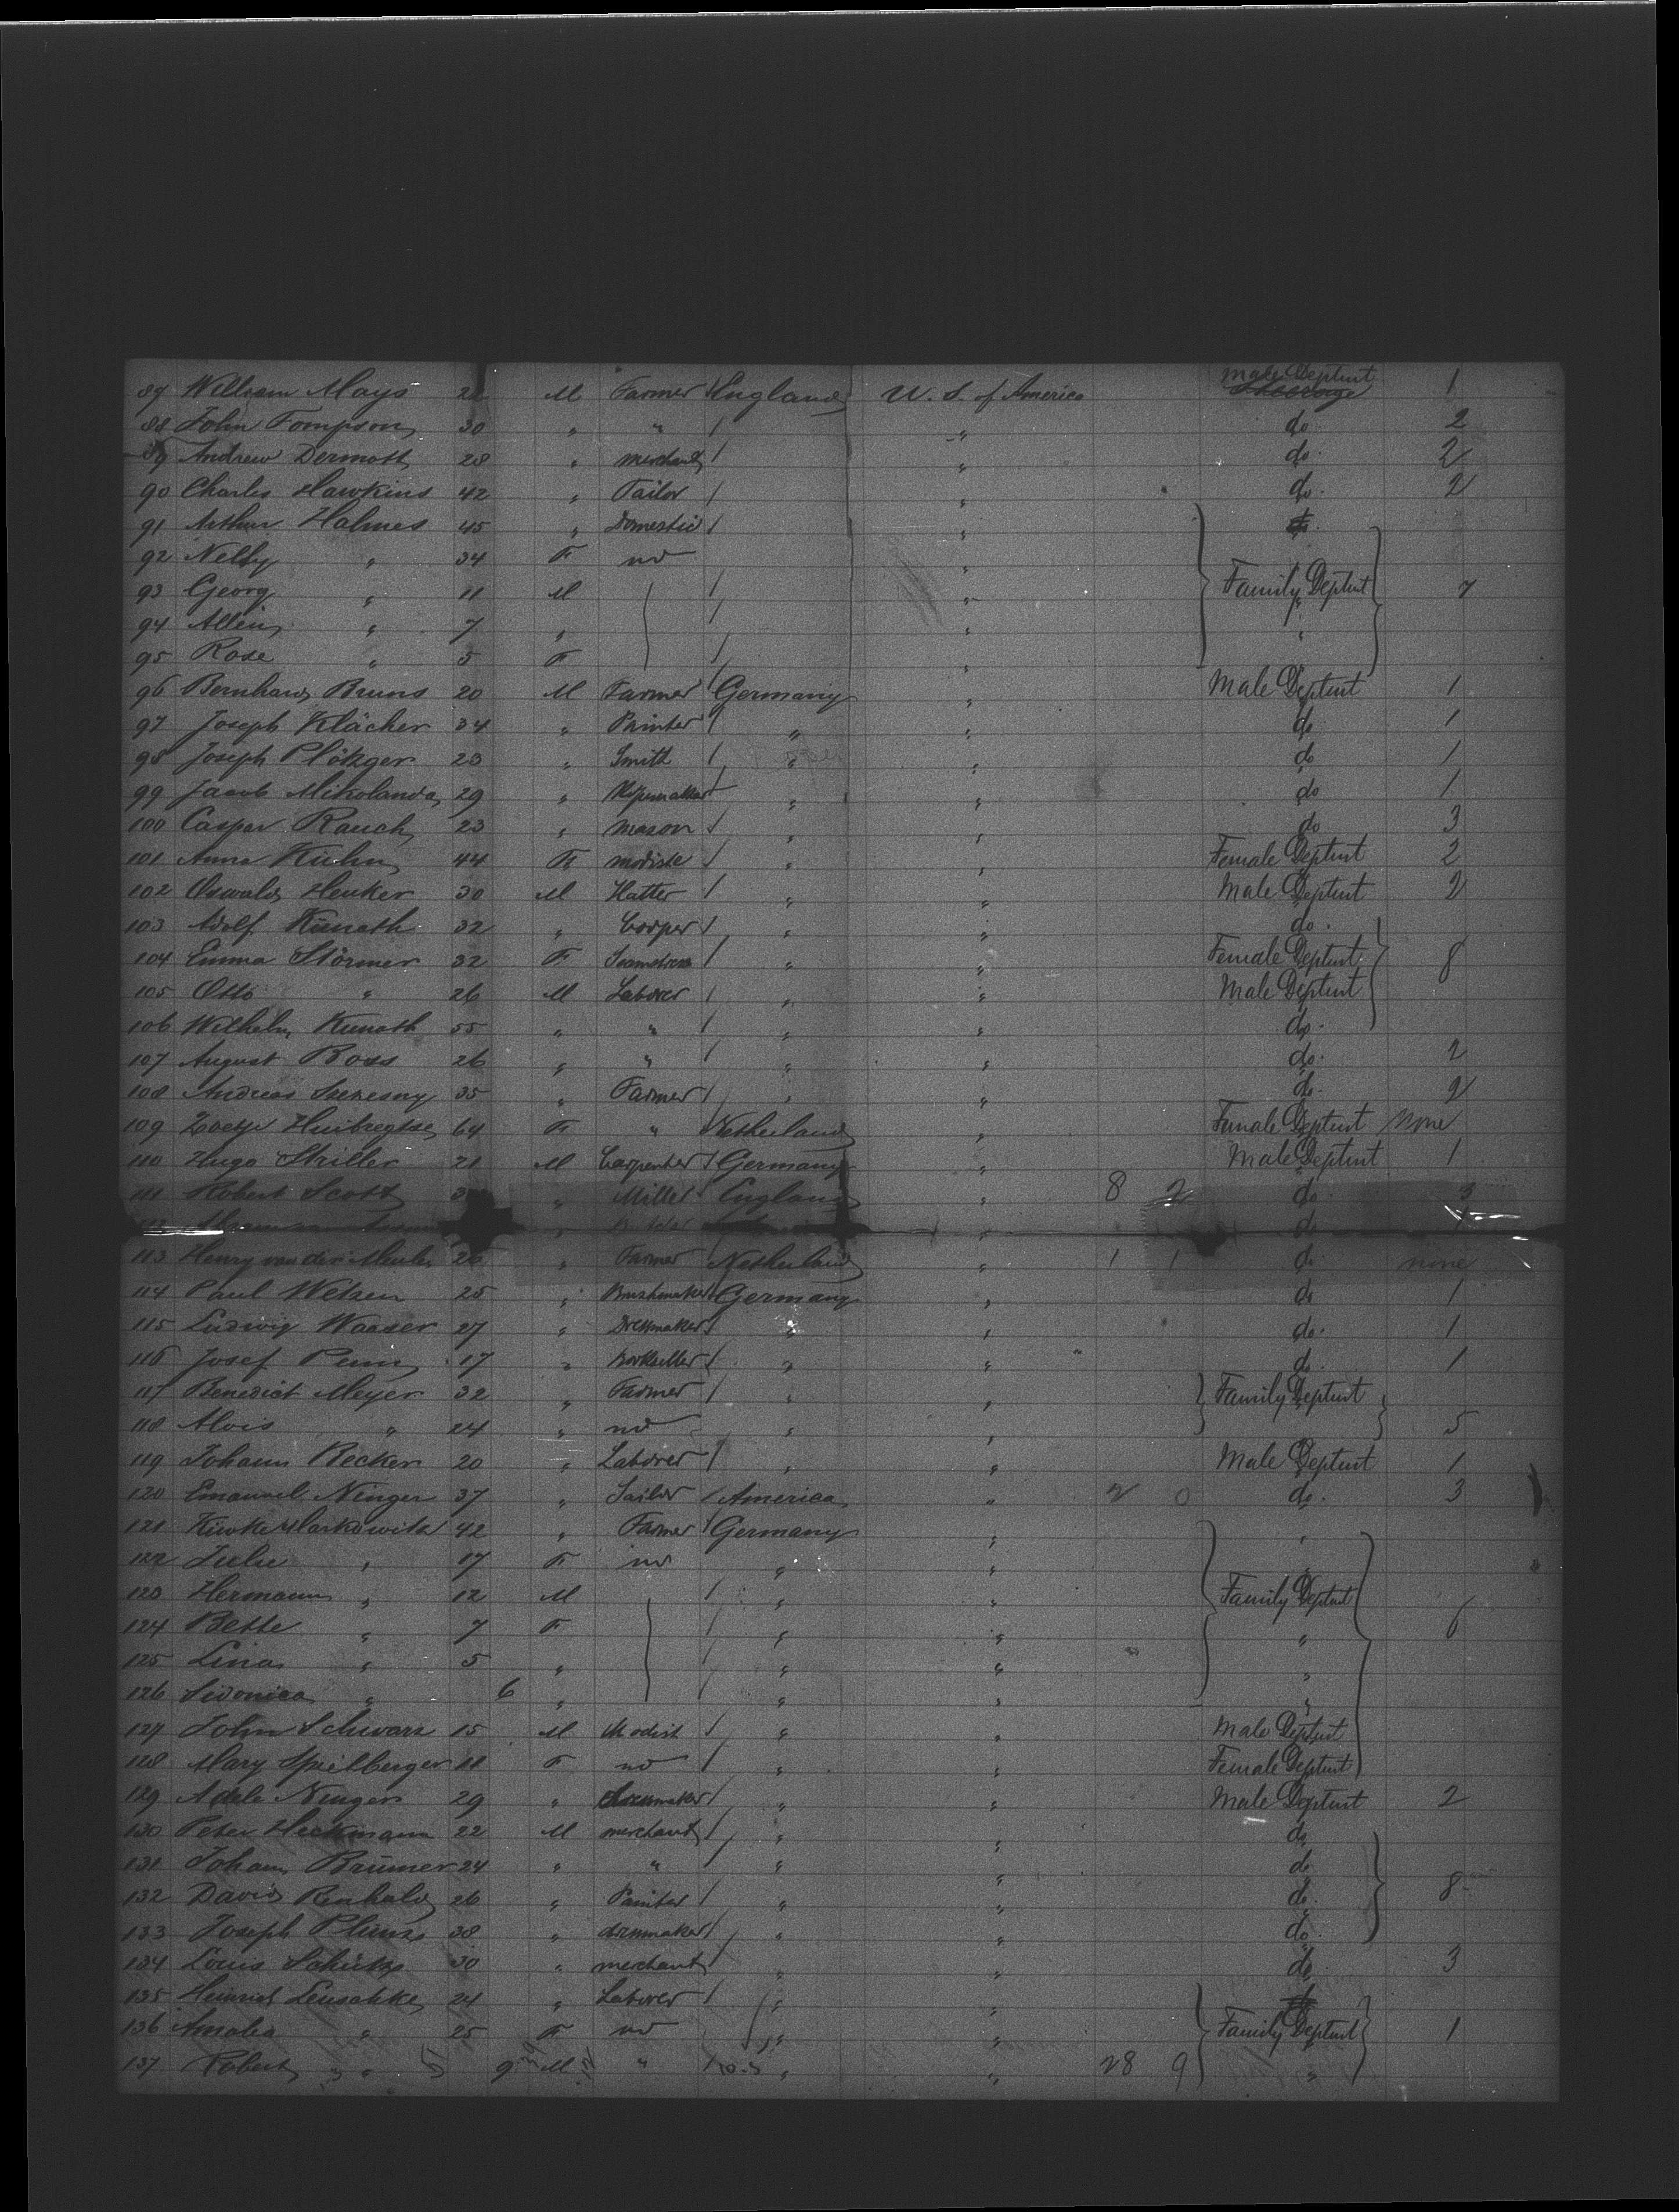 87 William Mays 22 M Farmer England U. S. of America Male Deptmt 1
88 John Tompson 30 " " " do 2
89 Andrew Dermott 28 " merchant " do. 2
90 Charles Hawkins 42 " Tailor " do. 2
91 Arthur Holmes 45 " Domestic " do.
92 Nelly " 34 F no "
93 Georg " 11 M " Family Deptmt 7
94 " 7 " " "
95 Rose " 5 F "
96 Bernhard Bruns 20 M Farmer Germany " Male Deptmt 1
97 Joseph Klächer 34 " Painter " " do 1
98 Joseph Plökger 23 " Smith " " do 1
99 Jacob Mikolanda 29 " " " do 1
100 Caspar Rauch 23 " mason " " do 3
101 Anna Kühn 44 F modiste " " Female Deptmt 2
102 Oswald Henker 30 M Hatter " " Male Deptmt 2
103 Adolf Künath 32 " Cooper " " do.
104 Emma Störmer 32 F Seamstress " " Female Deptmt 8
105 Otto " 26 M Laborer " " Male Deptmt
106 Wilhelm Künath 55 " " " " do.
107 August Boss 26 " " " " do. 2
108 Andreas 35 " Farmer " " do. 2
109 Huibregtse 64 F " Netherland " Female Deptmt None
110 Hugo Striller 21 M Carpenter Germany " Male Deptmt 1
111 Robert Scott " Miller England " 8 2 do 3
" do
113 Henry van der Meulen 26 " Farmer Netherland " 1 1 do none
114 Paul Welzen 25 " Brushmaker Germany " do 1
115 Ludwig Waaser 27 " " " do. 1
116 Josef 17 " Bookseller " " do. 1
117 Benedict Meyer 32 " Farmer " " Family Deptmt
118 Alois " 24 " no " " 5
119 Johann Becker 20 " Laborer " " Male Deptmt 1
120 Emanuel Ninger 37 " Sailor America " 2 0 do. 3
121 42 " Farmer Germany " "
122 Julie " 17 F no " "
123 Hermann " 12 M " " Family Deptmt 6
124 Bette " 7 F " " "
125 Lina " 5 " " " "
126 Sidonica " 6 " " " "
127 John Schwarz 15 M Modist " " Male Deptmt
128 Mary Spielberger 11 F no " " Female Deptmt
129 Adele Ninger 29 " " " Male Deptmt 2
130 Peter Heckmann 22 M merchant " " do
131 Johann Brümer 24 " " " " do
132 David 26 " Painter " " do. 8
133 Joseph 38 " " " do.
134 Louis Schütz 30 " merchant " " do. 3
135 Heinrich 24 " Laborer " "
136 Amalia " 25 F no " " Family Deptmt 1
137 Robert " 9 M " " " 28 9 "